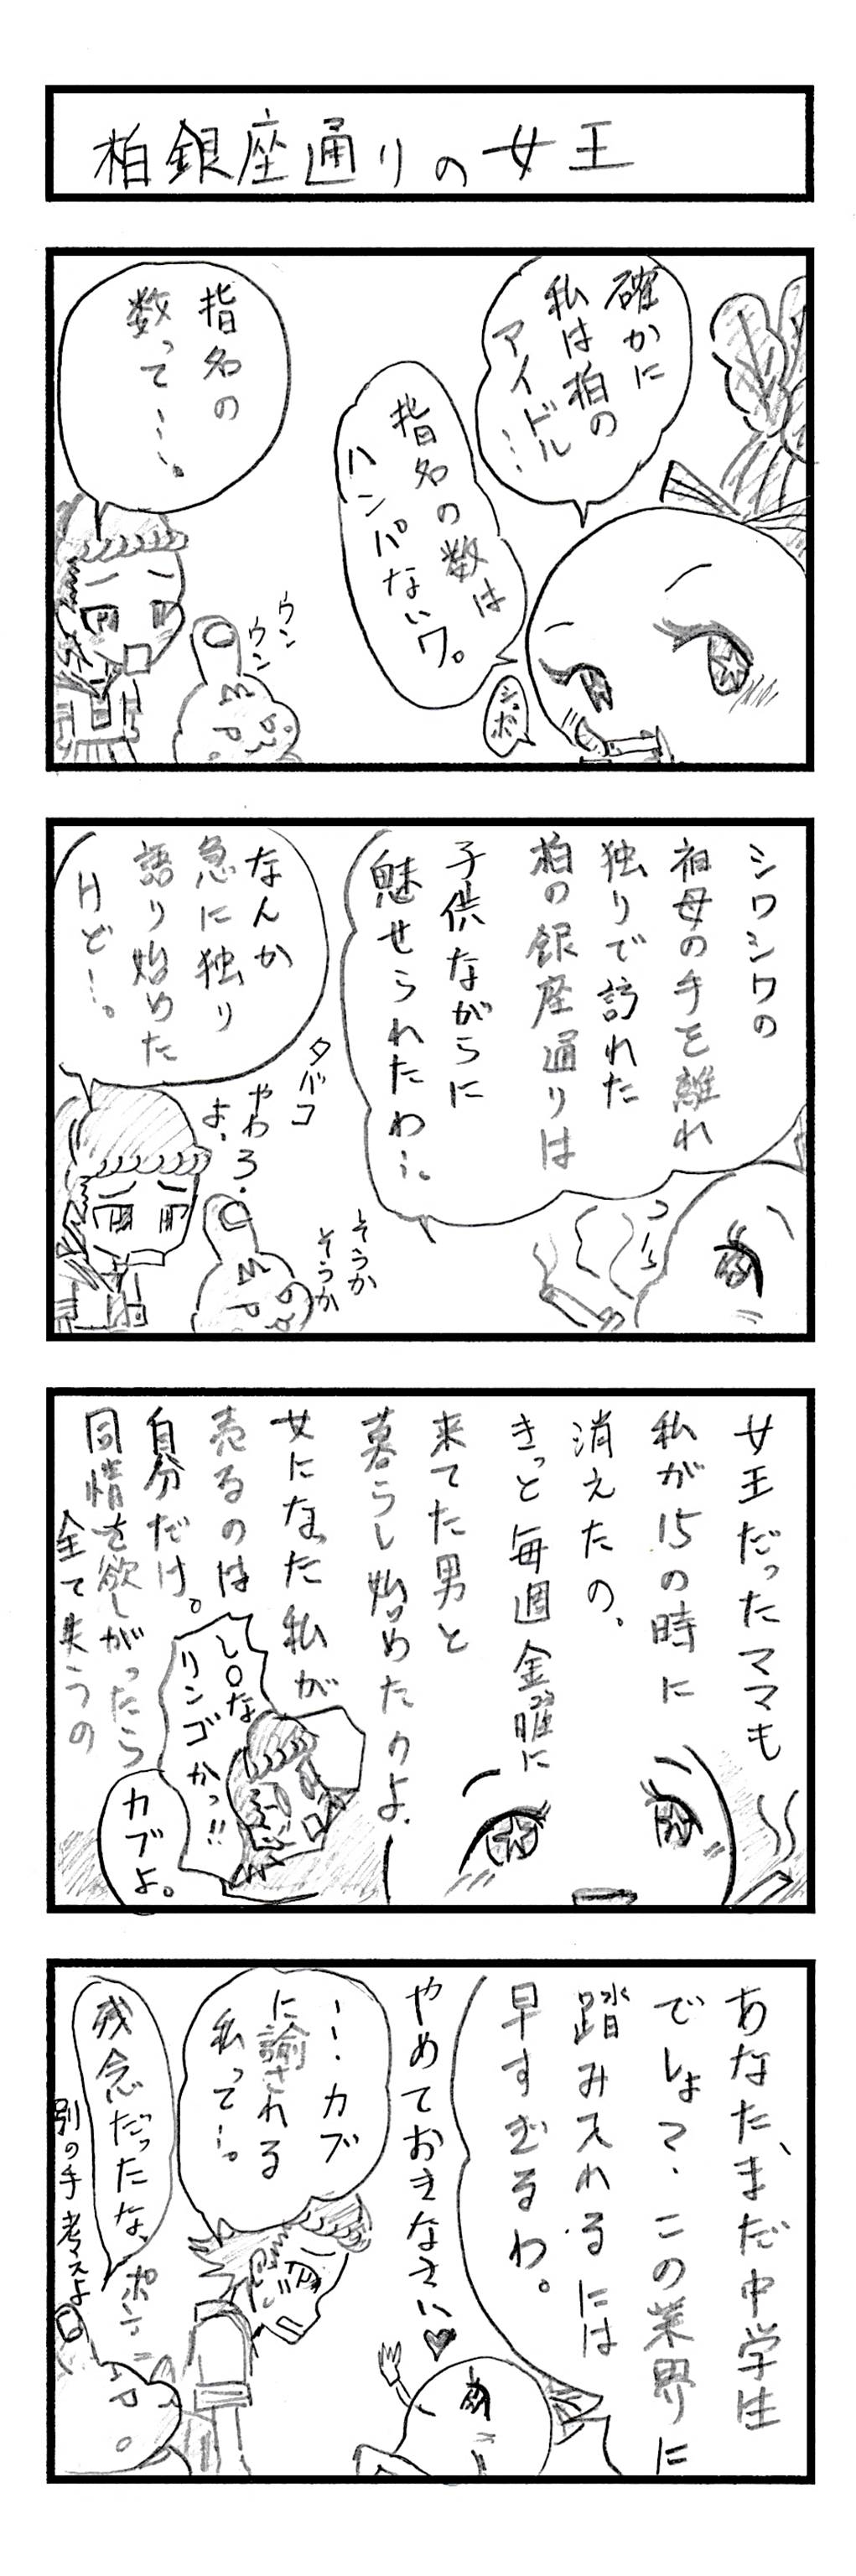 柏銀座通りの女王
確かに
私は柏の
アイドル…
指名の数は
ハンパないワ。
シュボ
指名の
数って…。
ウン
ウン
シワシワの
祖母の手を離れ
独りで訪れた
柏の銀座通りは
子供ながらに
魅せられたわ…。
なんか
急に独り
語り始めた
けど…。
タバコ
やわろ・
よ、
そうか
そうか
女王だったママも
私が15の時に
消えたの。
きっと毎週金曜に
来てた男と
暮らし始めたのよ。
女になった私が
売るのは
自分だけ。
同情を欲しがったら
全て失うの
し○な
リンゴかっ!!
カブよ。
あなた、まだ中学生
でしょ?この業界に
踏み入れるには
早すぎるわ。
やめておきなさい♥
…カブ
に諭される
私って…。
残念だったな、
別の手考えよ
ポン